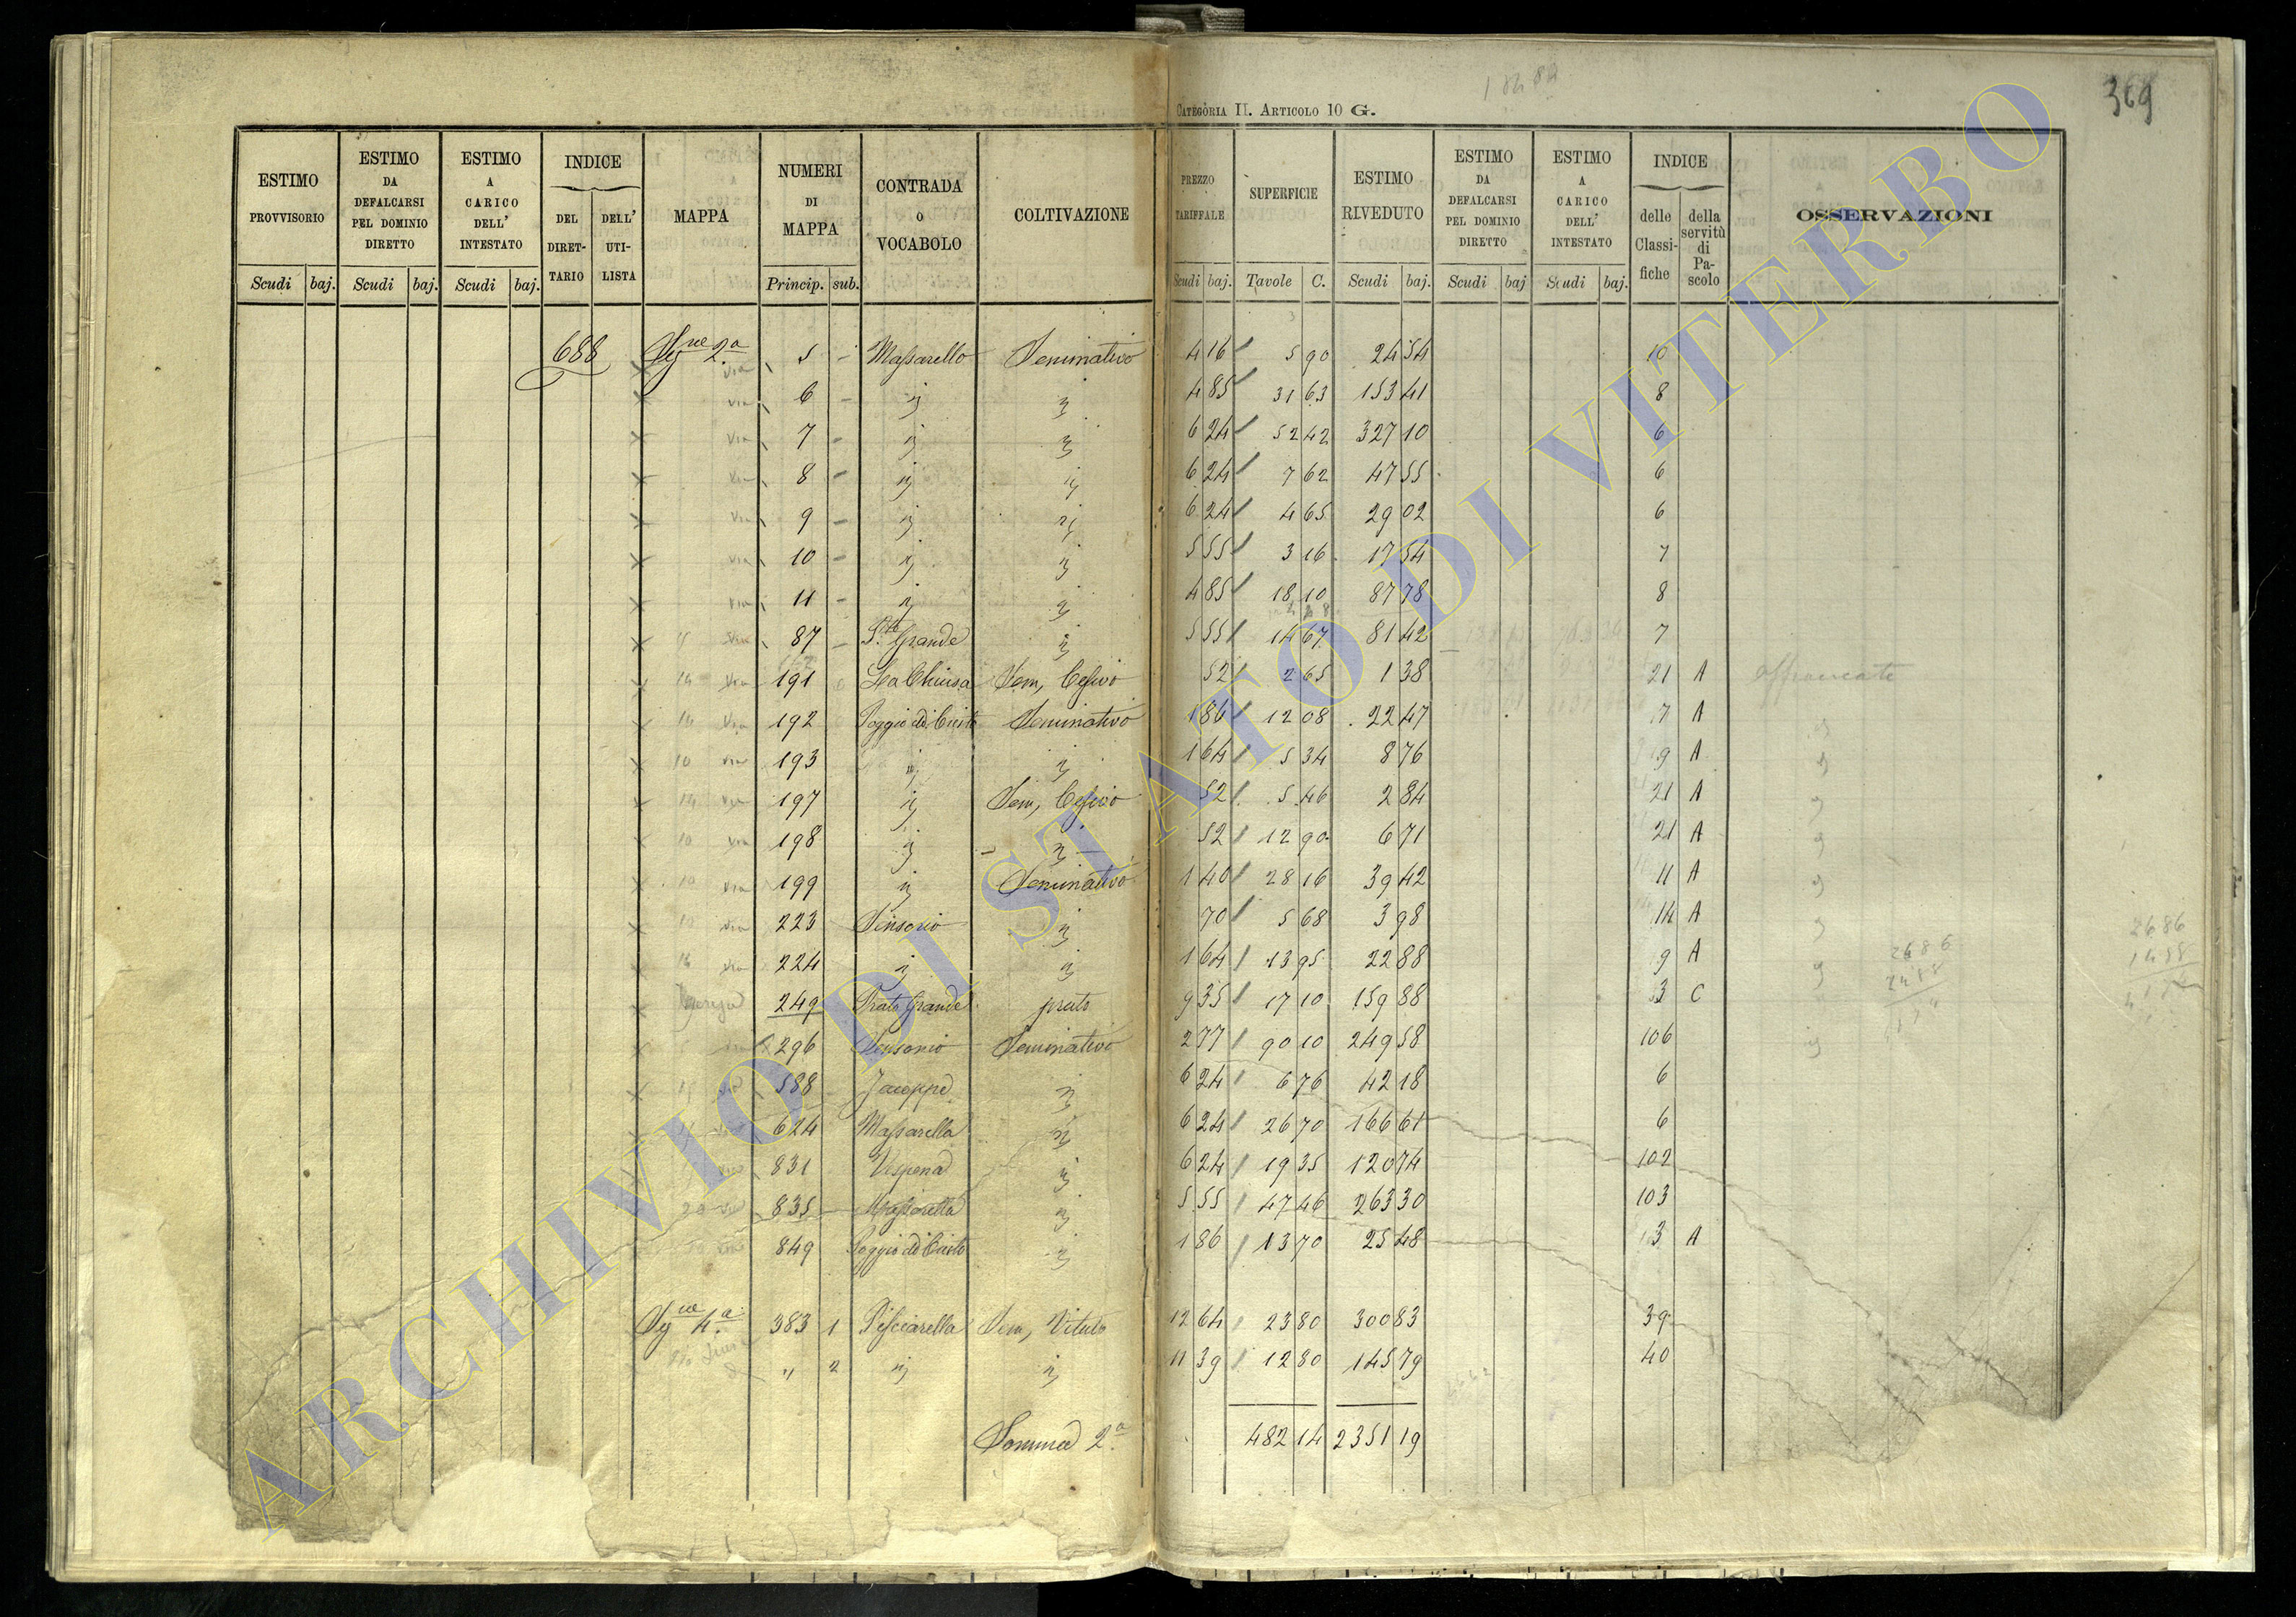 369
CATEGORIA II. ARTICOLO 10 G.
ESTIMO PROVVISORIO Scudi baj.
ESTIMO DA DEFALCARSI PEL DOMINIO DIRETTO Scudi baj.
ESTIMO A CARICO DELL' INTESTATO Scudi baj.
INDICE DEL DIRET-TARIO DELL' UTI-LISTA
MAPPA
NUMERI DI MAPPA Princip. sub.
CONTRADA O VOCABOLO
COLTIVAZIONE
PREZZO TARIFFALE Scudi baj.
SUPERFICIE Tavole C.
ESTIMO RIVEDUTO Scudi baj.
ESTIMO DA DEFALCARSI PEL DOMINIO DIRETTO Scudi baj
ESTIMO A CARICO DELL' INTESTATO Scudi baj.
INDICE delle Classi-fiche della servitù di Pa-scolo
OSSERVAZIONI
688 2a 5 Massarello Seminativo 4 16 5 90 24 54 10
6 " " 4 85 31 63 153 41 8
7 " " 6 24 52 42 327 10 6
8 " " 6 24 7 62 47 55 6
9 " " 6 24 4 65 29 02 6
10 " " 5 55 3 16 17 54 7
11 " " 4 85 18 10 87 78 8
87 Grande " 5 55 14 67 81 42 7
191 La Chiusa Sem, Cesivo 52 2 65 1 38 21 A affrancato
192 Poggio del Seminativo 1 86 12 08 22 47 7 A
193 " " 1 64 5 34 8 76 9 A
197 " Sem, Cesivo 52 5 46 2 84 21 A
198 " " 52 12 90 6 71 21 A
199 " Seminativo 1 40 28 16 39 42 11 A
223 Sensorio " 70 5 68 3 98 14 A
224 " " 1 64 13 95 22 88 9 A
249 Prato Grande prato 9 35 17 10 159 88 3 C
296 Sensorio Seminativo 2 77 90 10 249 58 106
588 " 6 24 6 76 42 18 6
624 Massarella " 6 24 26 70 166 61 6
831 Vespena " 6 24 19 35 120 74 102
835 Massarella " 5 55 47 46 263 30 103
849 Poggio del " 1 86 13 70 25 48 3 A
4a 383 1 Pisciarella Sem, Vitato 12 64 23 80 300 83 39
" 2 " " 11 39 12 80 145 79 40
Somma 2a 482 14 2351 19
ARCHIVIO DI STATO DI VITERBO